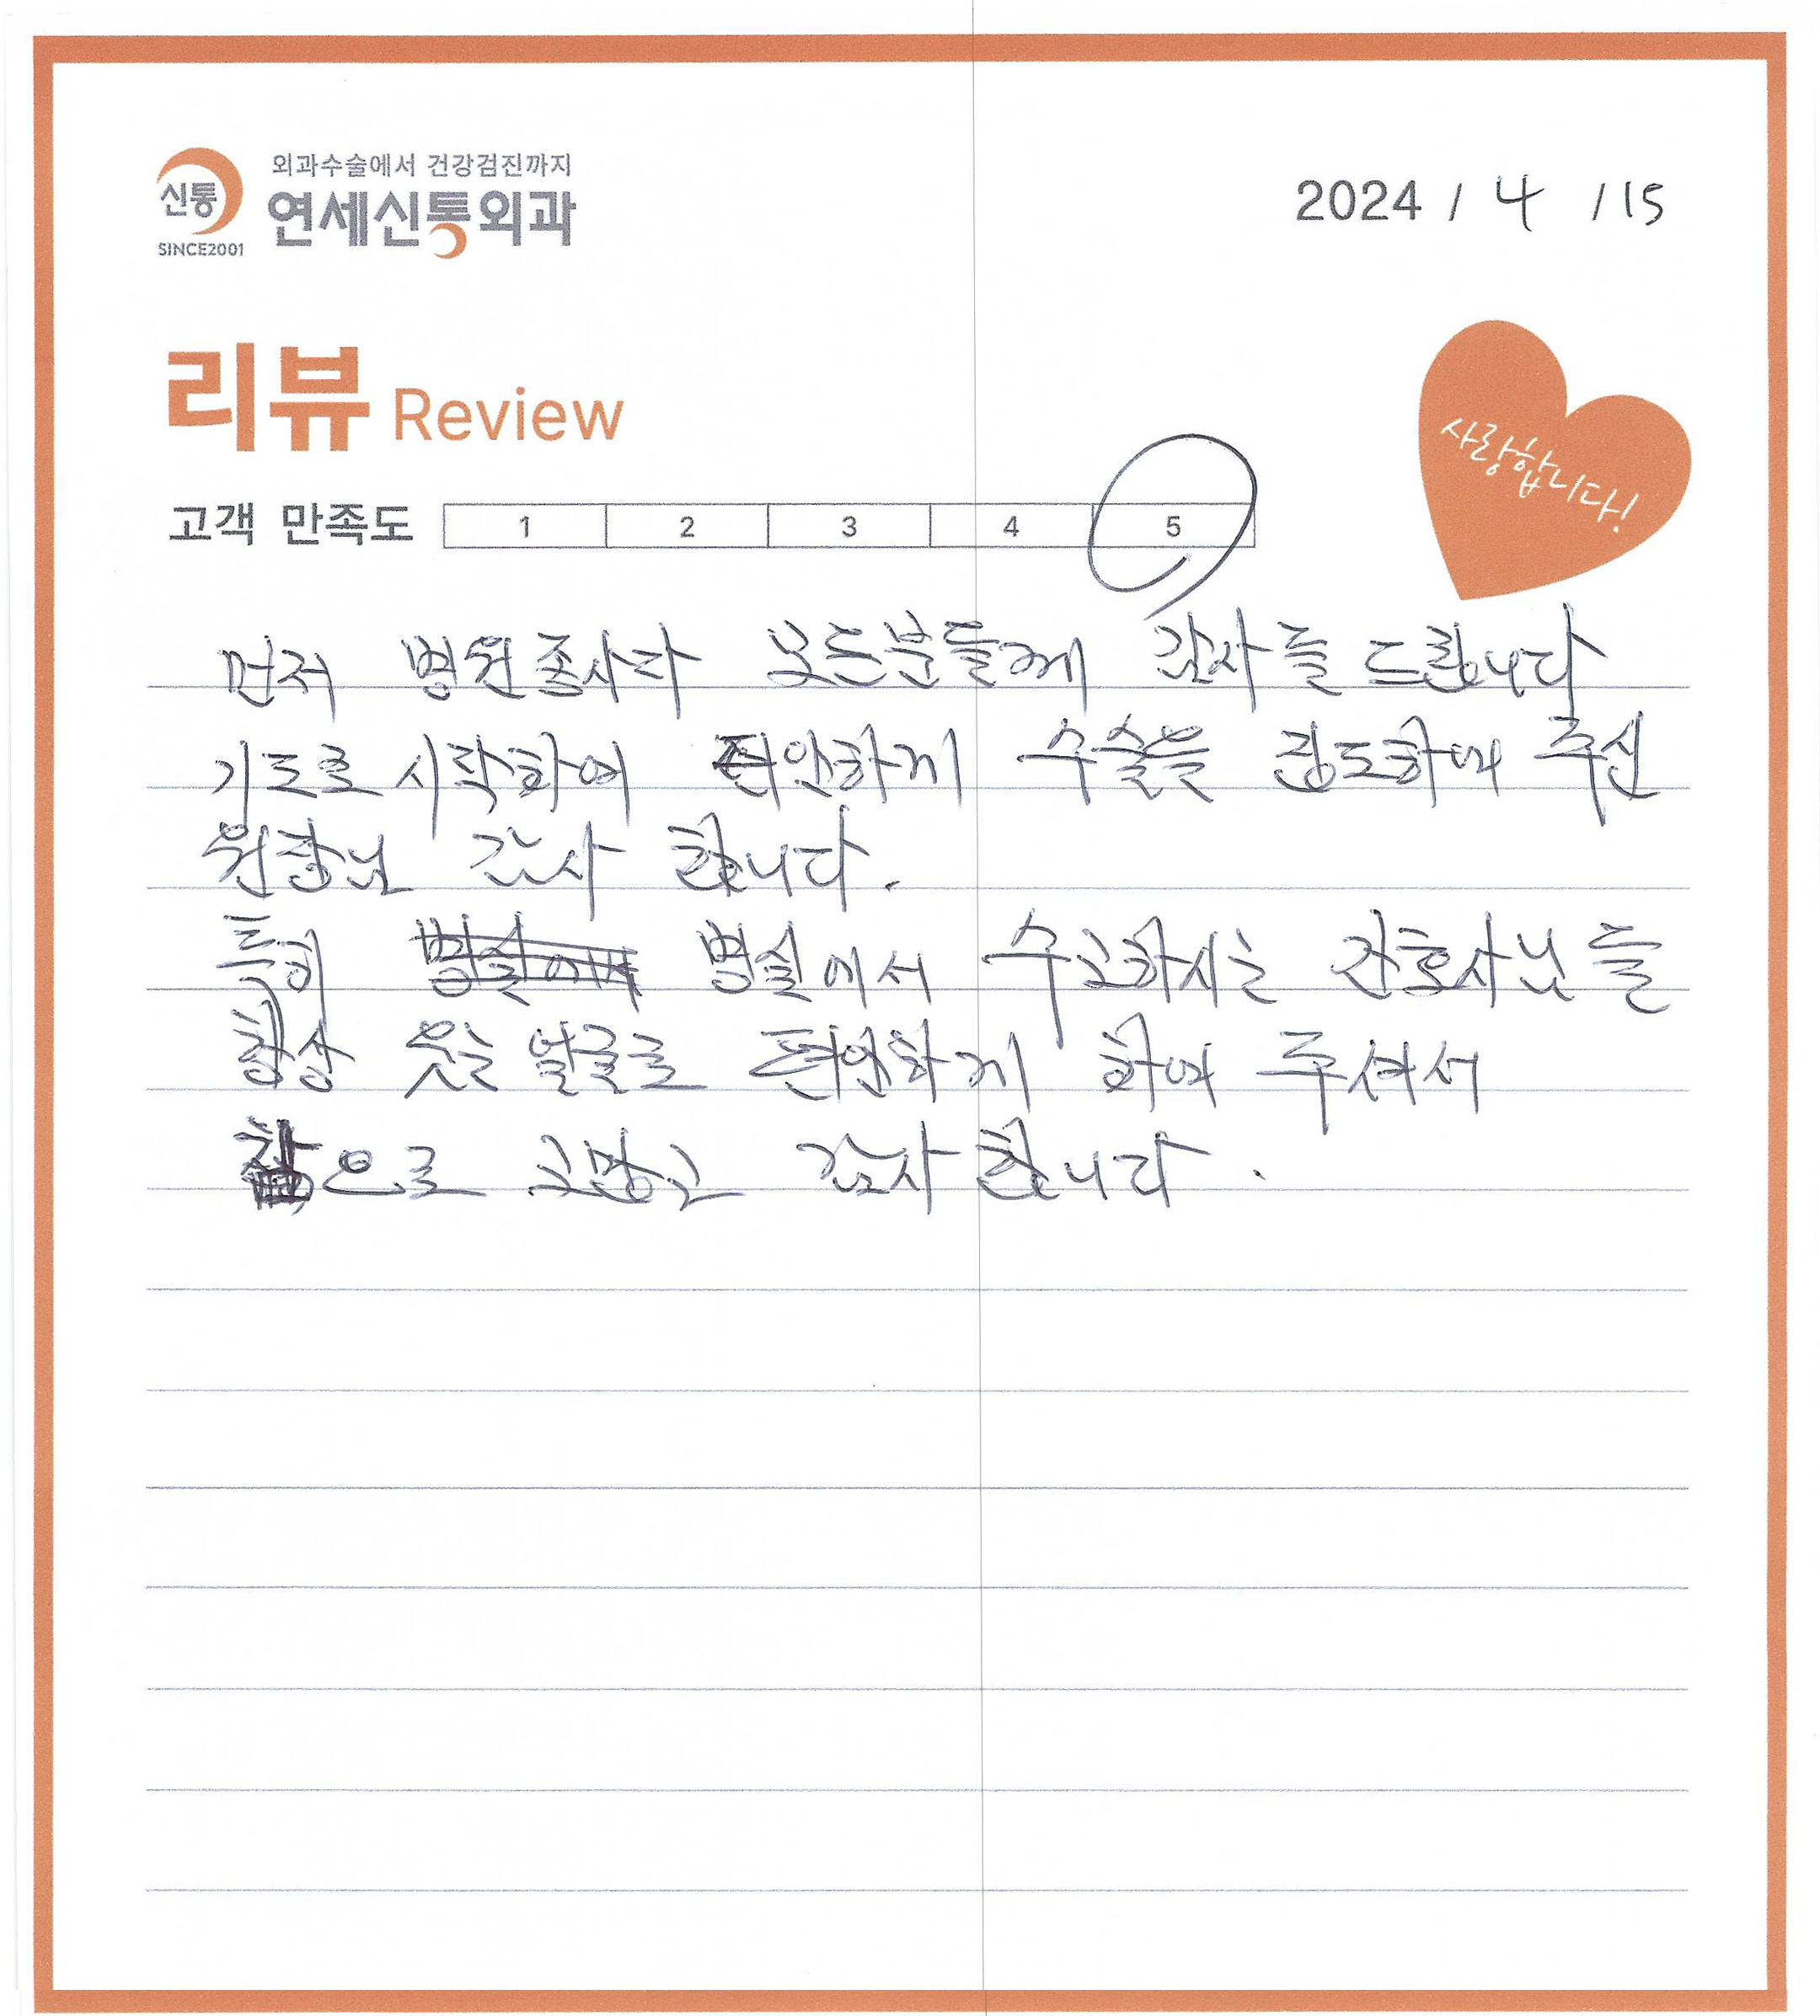 외과수술에서 건강검진까지
신통 연세신통외과
SINCE2001
2024 / 4 / 15
리뷰 Review
사랑합니다!
고객 만족도 1 2 3 4 5
먼저 병원종사자 모든분들께 감사를 드립니다
기도로 시작하여 편안하게 수술을 집도하여 주신
원장님 감사 합니다.
특히 병실에서 수고하시는 간호사님들
항상 웃는 얼굴로 편안하게 하여 주셔서
참으로 고맙고 감사합니다.